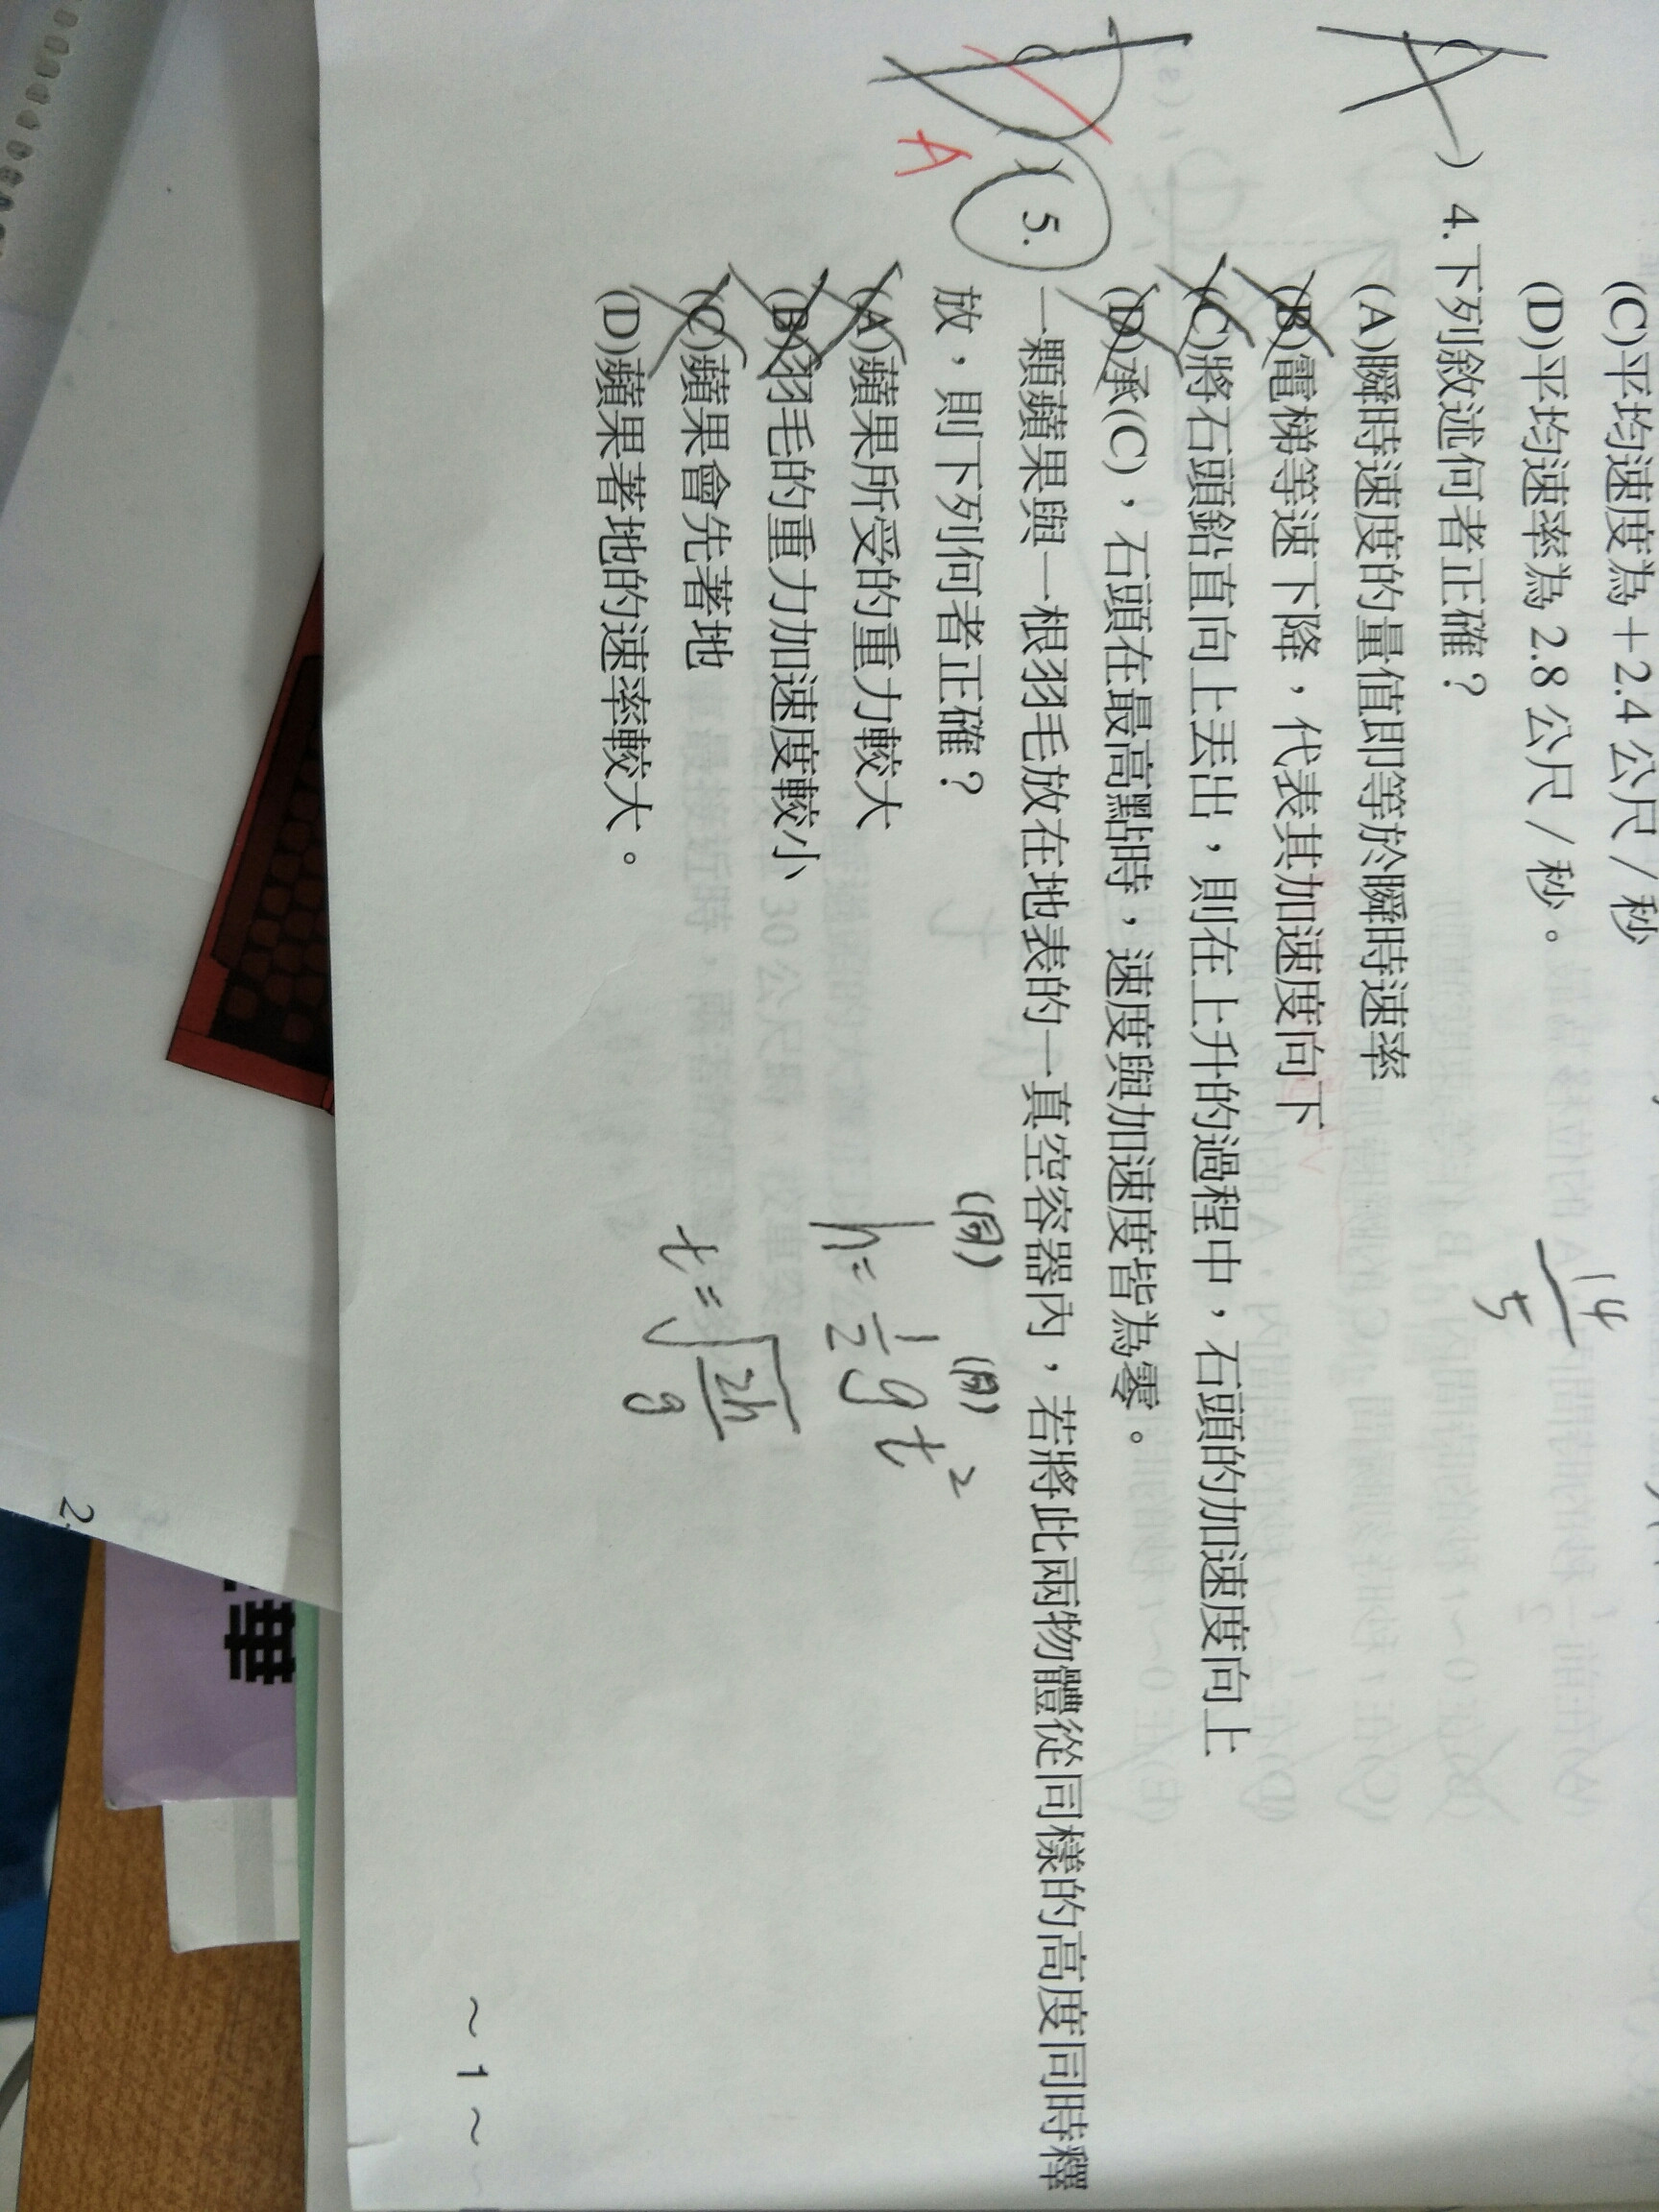 (C)平均速度為＋2.4公尺／秒
(D)平均速率為 2.8 公尺／秒。
14
5
A ) 4.下列敘述何者正確？
(A)瞬時速度的量值即等於瞬時速率
(B)電梯等速下降，代表其加速度向下
(C)將石頭鉛直向上丟出，則在上升的過程中，石頭的加速度向上
(D)承(C)，石頭在最高點時，速度與加速度皆為零。
( D ) 5.
A
一顆蘋果與一根羽毛放在地表的一真空容器內，若將此兩物體從同樣的高度同時釋
放，則下列何者正確？
(同) (同)
(A)蘋果所受的重力較大
h = 1/2 g t²
(B)羽毛的重力加速度較小
(C)蘋果會先著地
t = √(2h/g)
(D)蘋果著地的速率較大。
~ 1 ~
2